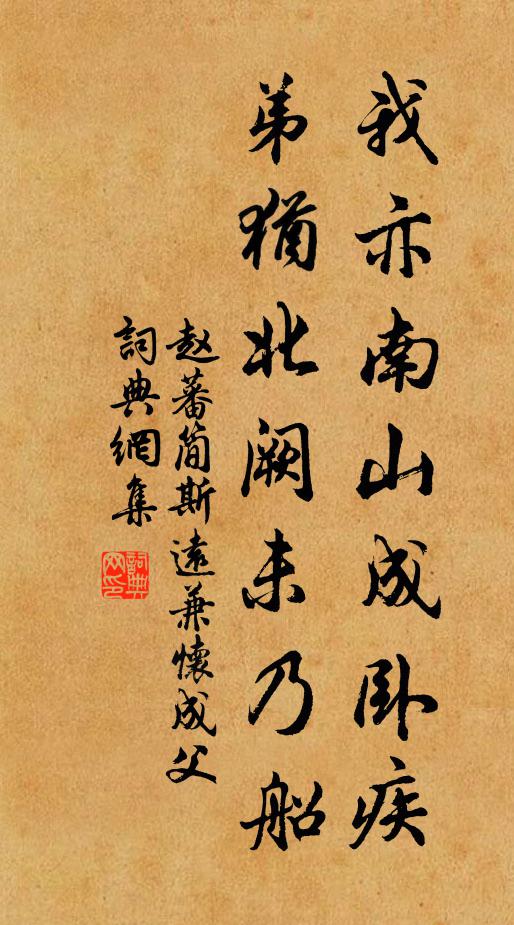 我亦南山成卧疾
弟猶北阙未乃船
赵蕃简斯遠兼懷成父
詞典網集
詞典网印